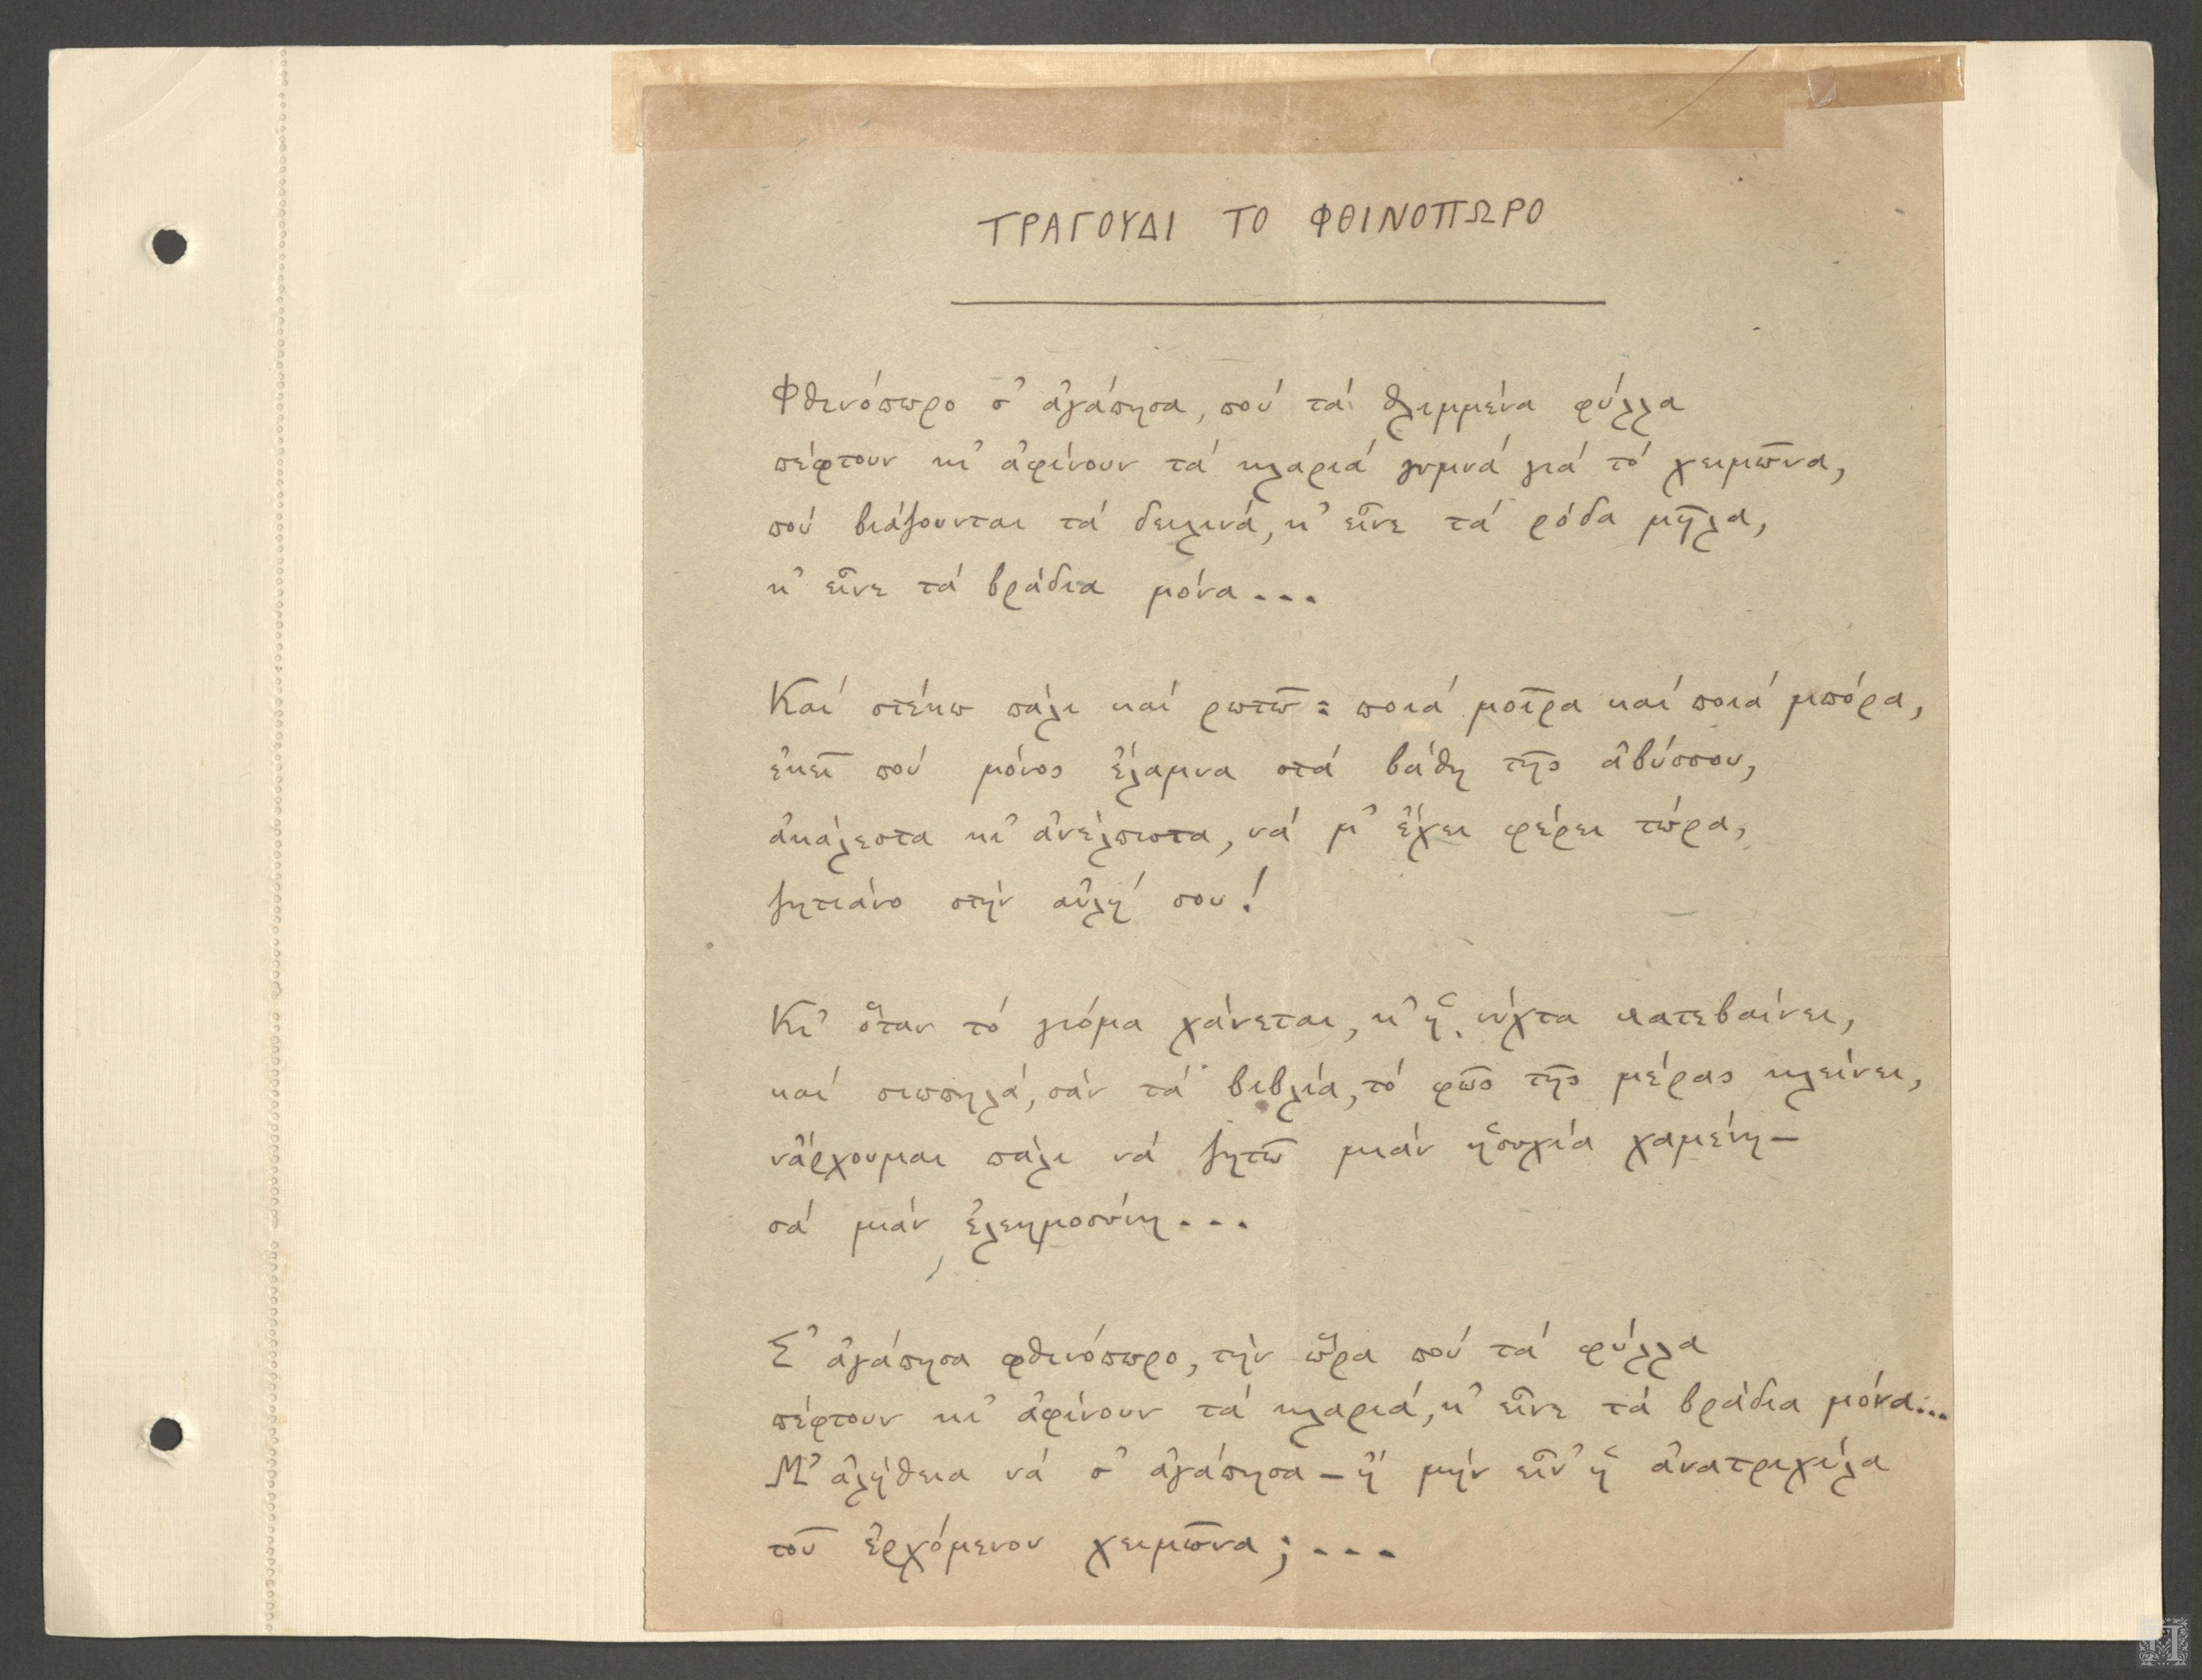 ΤΡΑΓΟΥΔΙ ΤΟ ΦΘΙΝΟΠΩΡΟ
Φθινόπωρο σ' ἀγάπησα, πού τά θλιμμένα φύλλα
πέφτουν κι' ἀφίνουν τά κλαριά γυμνά γιά τό χειμῶνα,
πού βιάζουνται τά δειλινά, κ' εἶνε τά ρόδα μῆλα,
κ' εἶνε τά βράδια μόνα...
Καί στέκω πάλι καί ρωτῶ: ποιά μοῖρα καί ποιά μπόρα,
ἐκεῖ πού μόνος ἔλαμνα στά βάθη τῆς ἀβύσσου,
ἀκάλεστα κι' ἀνέλπιστα, νά μ' ἔχει φέρει τώρα,
ζητιάνο στήν αὐλή σου!
Κι' ὅταν τό γιόμα χάνεται, κ' ἡ νύχτα κατεβαίνει,
καί σιωπηλά, σάν τά βιβλία, τό φῶς τῆς μέρας κλείνει,
νἄρχουμαι πάλι νά ζητῶ μιάν ἡσυχία χαμένη—
σά μιάν ἐλεημοσύνη...
Σ' ἀγάπησα φθινόπωρο, τήν ὥρα πού τά φύλλα
πέφτουν κι' ἀφίνουν τά κλαριά, κ' εἶνε τά βράδια μόνα...
Μ' ἀλήθεια νά σ' ἀγάπησα — ἤ μήν εἶν' ἡ ἀνατριχίλα
τοῦ ἐρχόμενου χειμῶνα;...